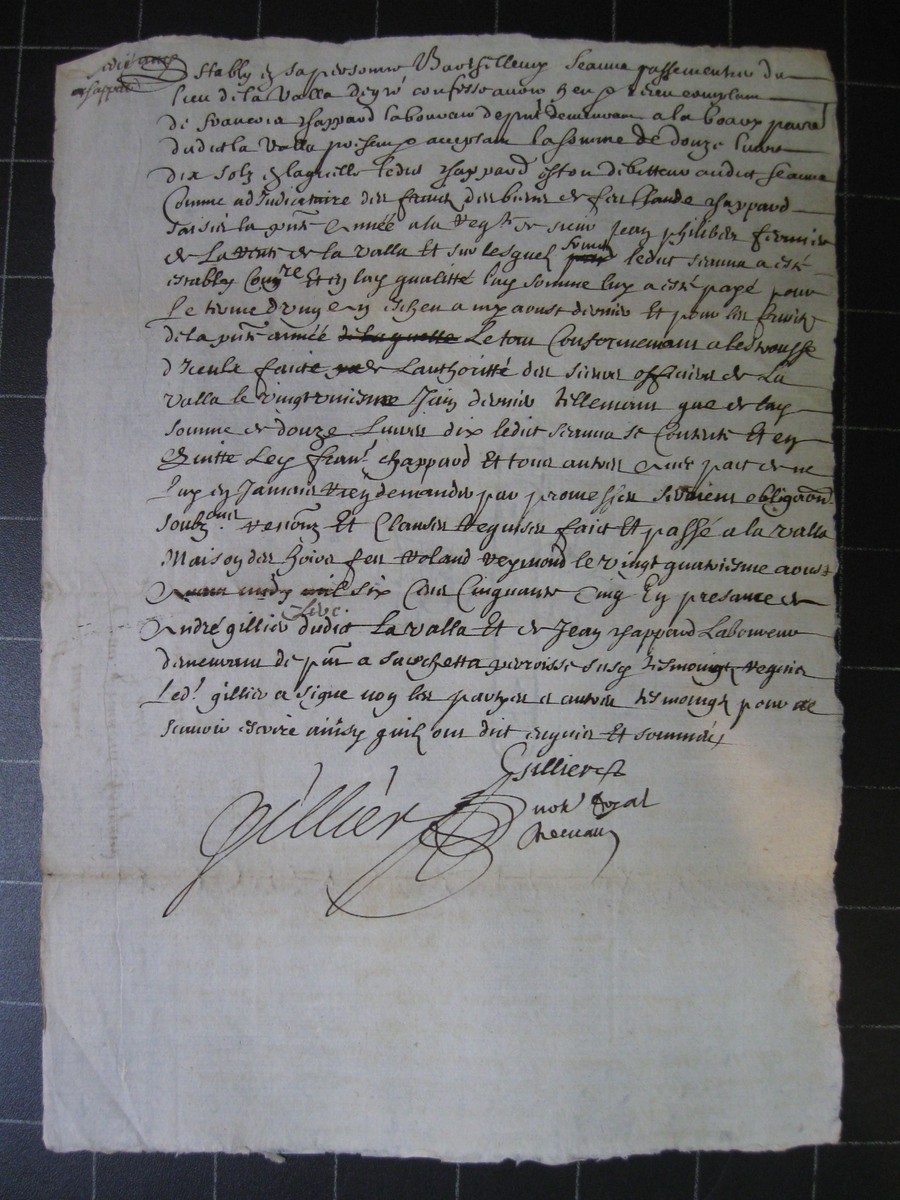 Estably en sa personne Barthellemy Seauna passementier du
lieu de la Valla de gré confesse avoir heu et receu comptan
de François Chappard laboureur de pnt demeurant a la
dudict la Valla present et acceptant la somme de douze livres
dix solz en laquelle ledict Chappard est debitteur audict Seauna
Comme adjudicataire des fruictz des biens de feu Claude Chappard
saisis la pnte année a la reqte de sieur Jean Philibert fermier
de la de la Valla et sur lesquelz fruictz ledict Seauna a esté
estably Comre Et en lad qualitté lad somme luy a esté payé pour
Le terme d'un an escheu a my aoust dernier Et pour les fruictz
de la pnte année de laquelle Le tout Conformement a
d'iceulx faicte de L'authoritté des sieurs officiers de La
Valla le vingt Juin dernier tellement que de lad
somme de douze Livres dix ledict Seauna se Contente Et en
quitte Led Fran. Chappard Et tous autres avec pact de ne
luy en Jamais rien demander par promesses serment obligaon
soubz on renonz Et Clauses requises faict Et passé a la Valla
Maison des hoirs feu Roland Reymond le vingt quatriesme aoust
mil six Cens Cinquante Cinq En presance de
André Gillier Clerc dudict La Valla Et de Jean Chappard Laboureur
demeurant de pnt a parroisse susd tesmoingz requis
Led. Gillier a signé non les partyes et autre tesmoingt pour ne
scavoir escrire ainsy quilz ont dict enquis Et sommés
Gillier
Gillier
not. royal
recevant